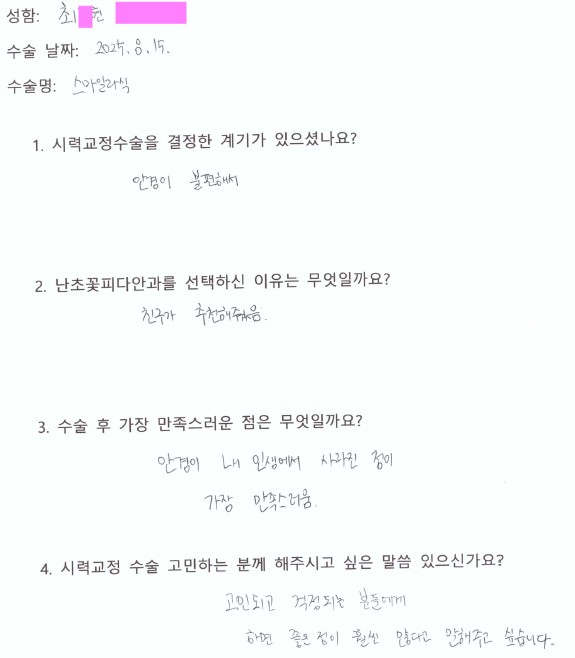 성함: 최 현
수술 날짜: 2025. 8. 15.
수술명: 스마일라식
1. 시력교정수술을 결정한 계기가 있으셨나요?
안경이 불편해서
2. 난초꽃피다안과를 선택하신 이유는 무엇일까요?
친구가 추천해줬음.
3. 수술 후 가장 만족스러운 점은 무엇일까요?
안경이 내 인생에서 사라진 점이
가장 만족스러움.
4. 시력교정 수술 고민하는 분께 해주시고 싶은 말씀 있으신가요?
고민되고 걱정되는 분들에게
하면 좋은 점이 훨씬 많다고 말해주고 싶습니다.